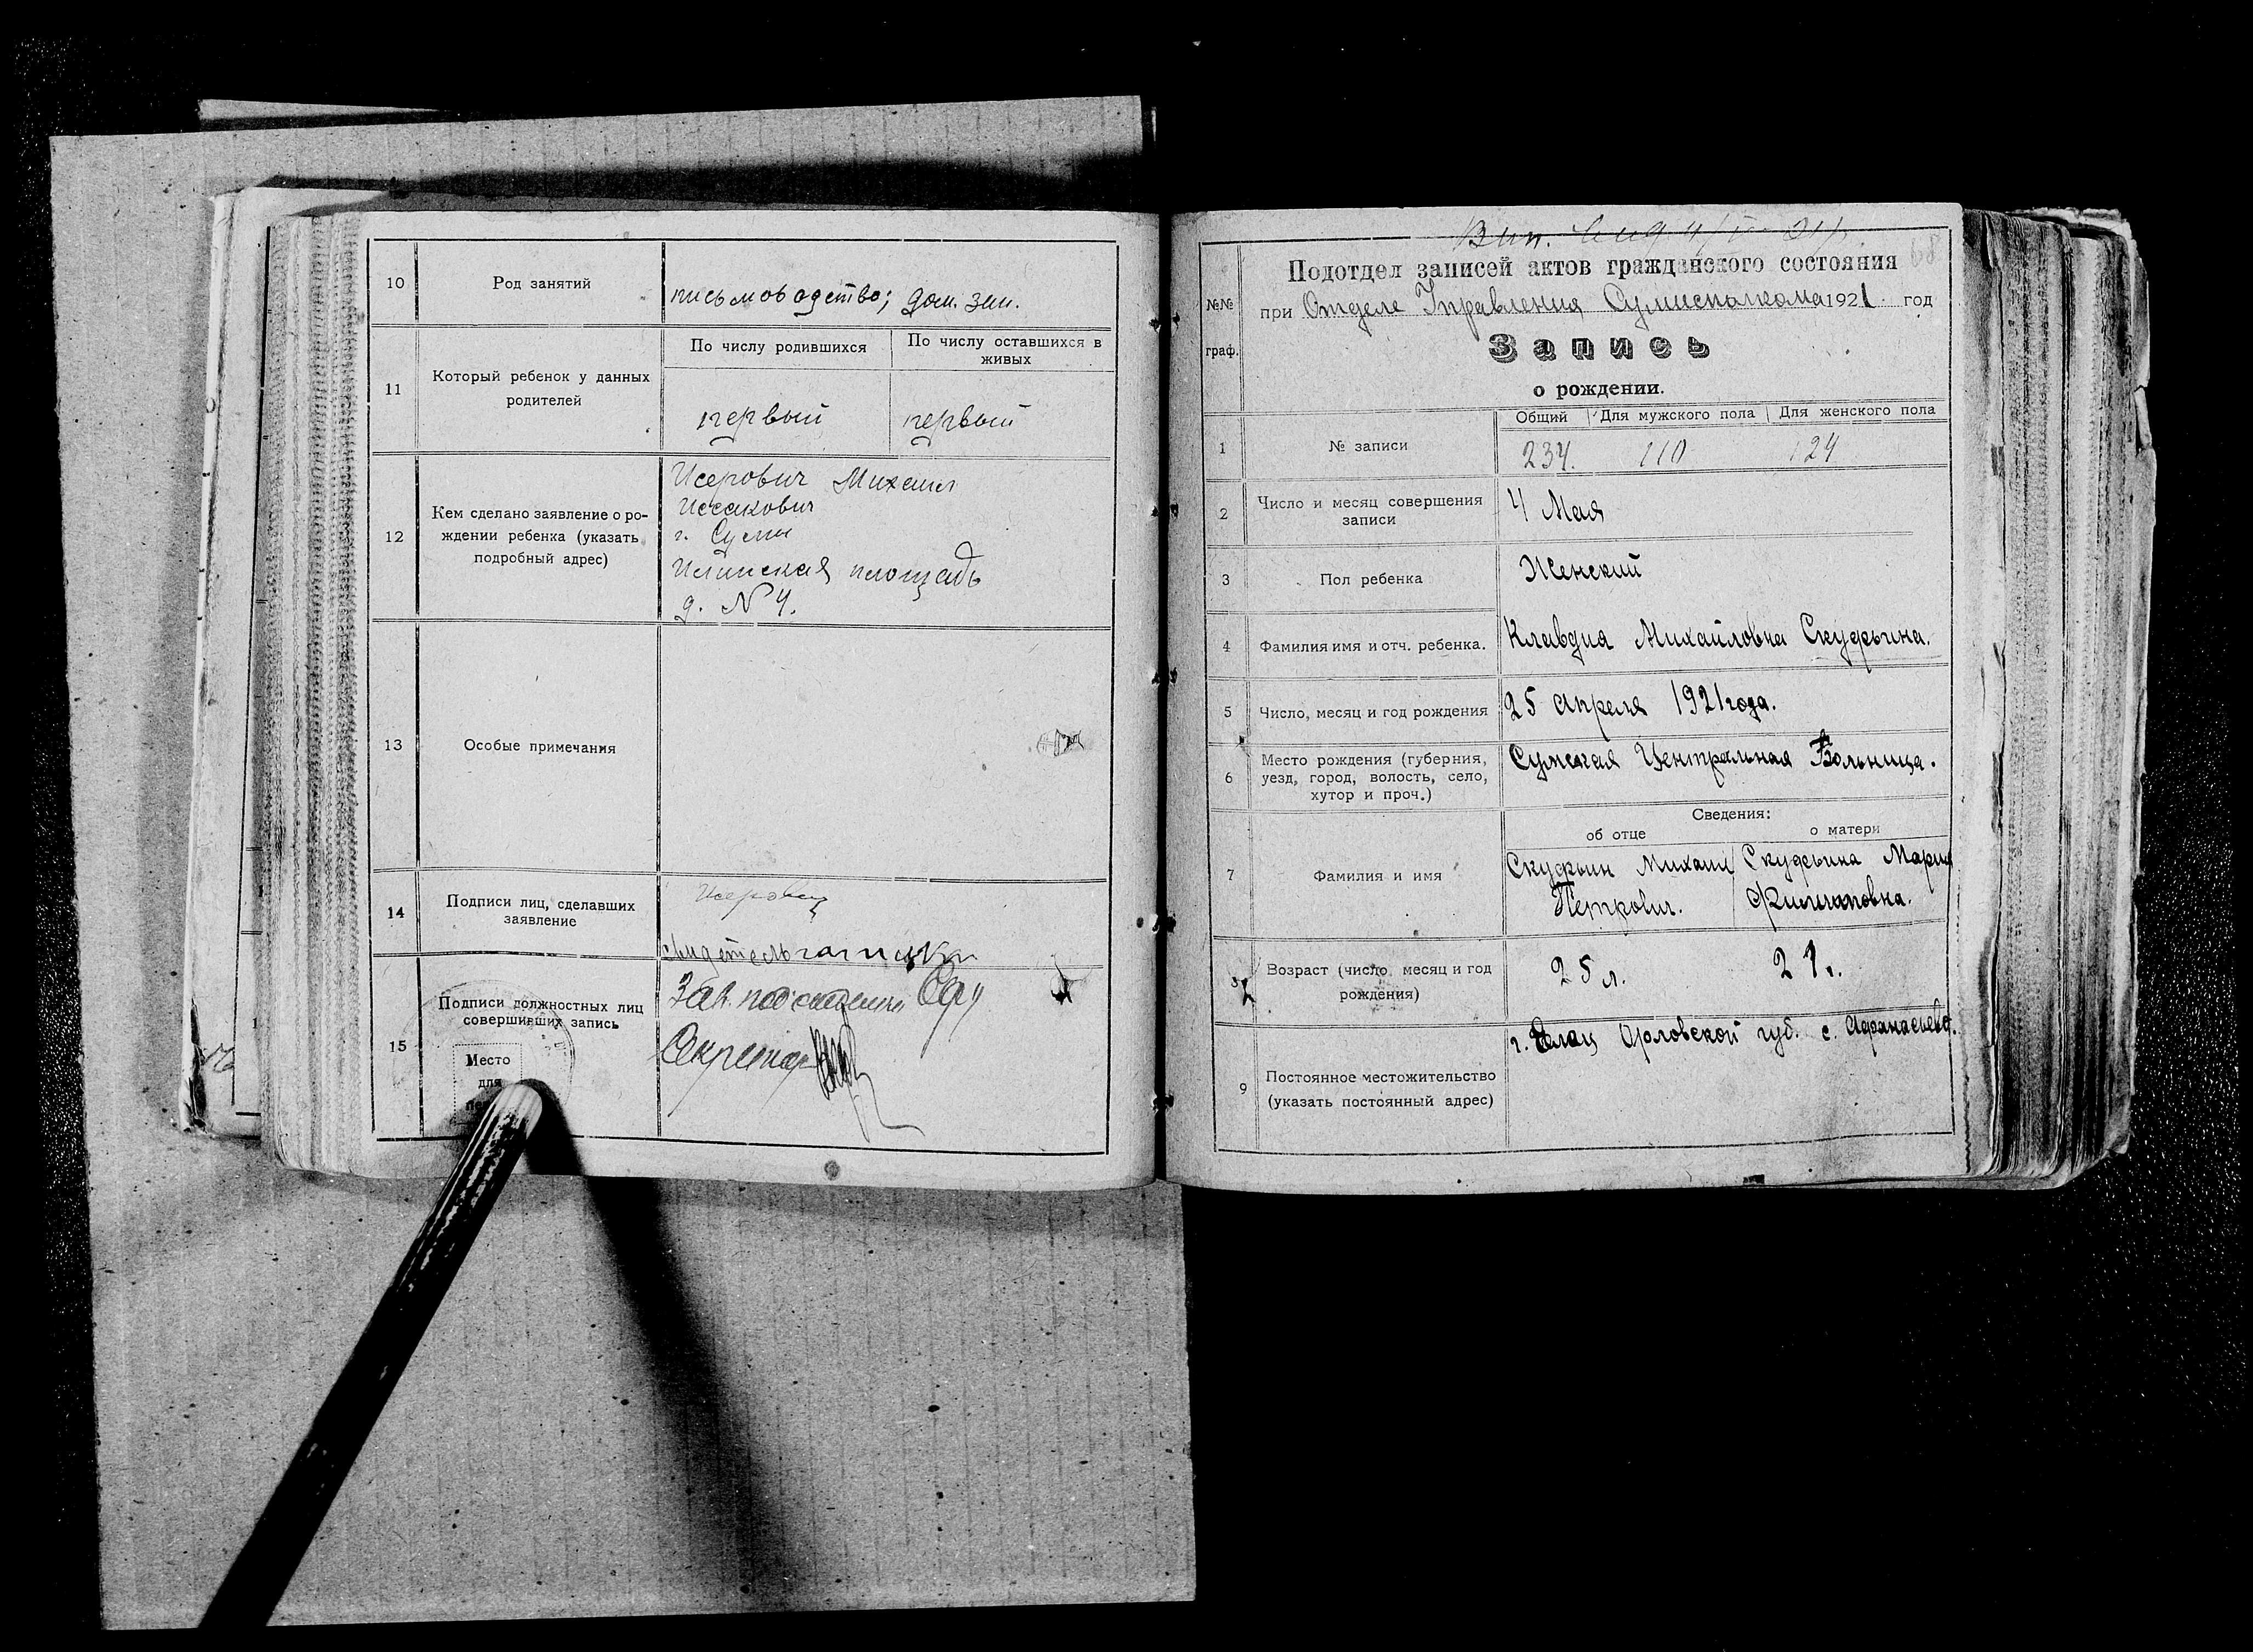 10
Род занятий
письмоводство; дом. зан.
11
Который ребенок у данных
родителей
По числу родившихся
По числу оставшихся в
живых
первый
первый
12
Кем сделано заявление о ро-
ждении ребенка (указать
подробный адрес)
Исерович Михаил
Исакович
г. Сумы
площадь
д. № 4.
13
Особые примечания
14
Подписи лиц, сделавших
заявление
Исерович
15
Подписи должностных лиц
совершивших запись
Место
для
Зав. подотделом
Секретарь
68
Подотдел записей актов гражданского состояния
№№
граф.
при Отделе Управления Сумисполкома 1921 год
Запись
о рождении.
1
№ записи
Общий
Для мужского пола
Для женского пола
234.
110
124
2
Число и месяц совершения
записи
4 Мая
3
Пол ребенка
Женский
4
Фамилия имя и отч. ребенка.
Клавдия Михайловна Скуфьина.
5
Число, месяц и год рождения
25 апреля 1921 года.
6
Место рождения (губерния,
уезд, город, волость, село,
хутор и проч.)
Сумская Центральная Больница.
Сведения:
об отце
о матери
7
Фамилия и имя
Скуфьин Михаил
Петрович.
Скуфьина Мария
Филипповна.
Возраст (число, месяц и год
рождения)
25 л.
21 г.
9
Постоянное местожительство
(указать постоянный адрес)
г. Елец Орловской губ. с. Афанасьево.